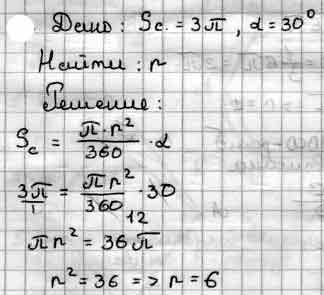 Дано: Sc. = 3π, α = 30°
Найти: r
Решение:
Sc = π·r²/360 · α
3π/1 = πr²/360 · 30
12
πr² = 36π
r² = 36 => r = 6